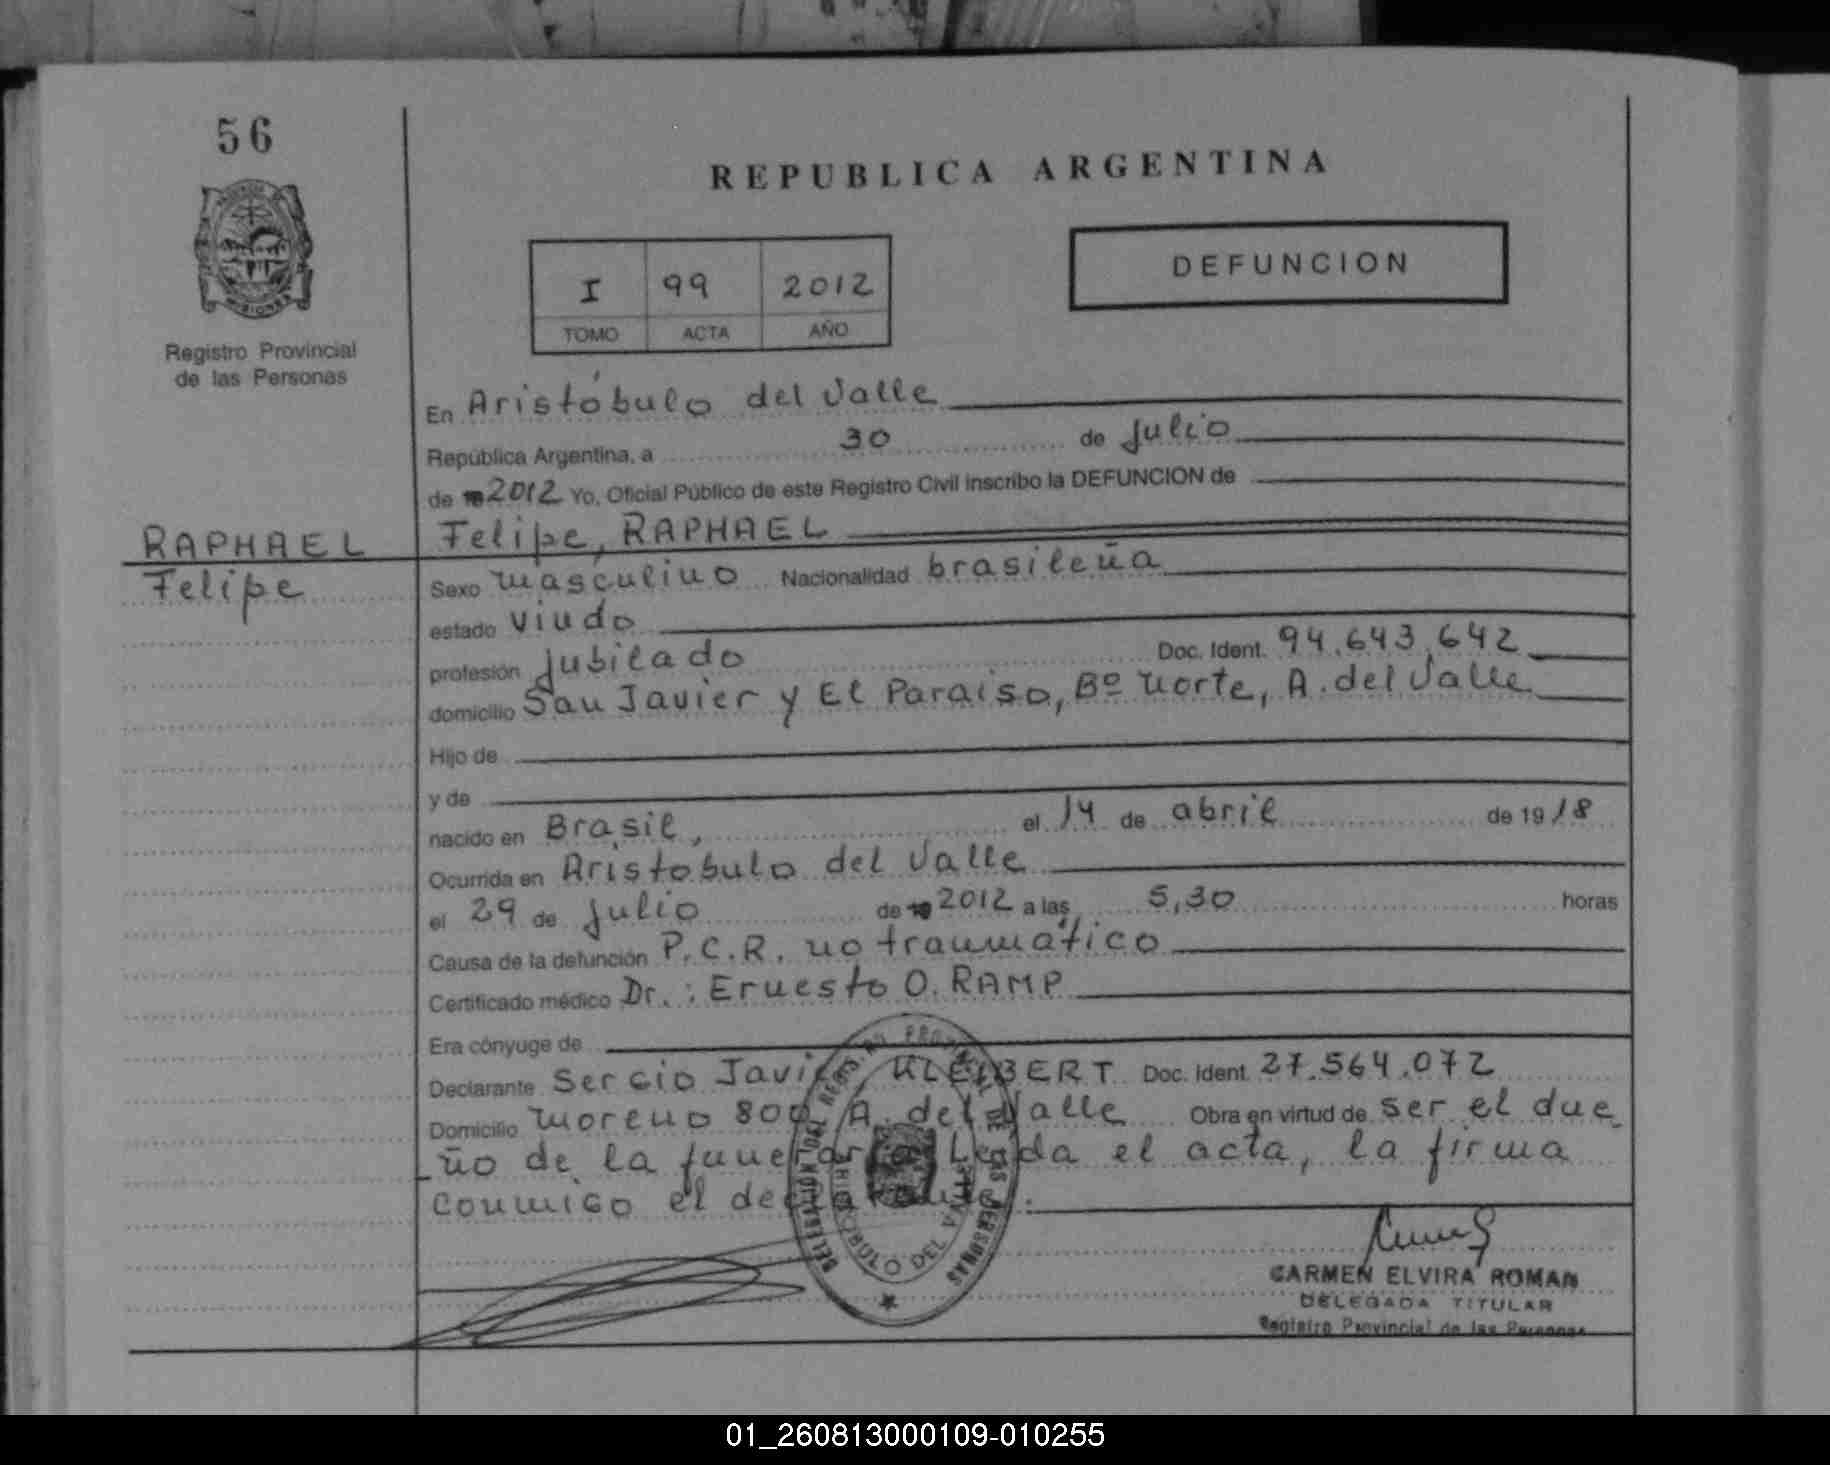 56
REPUBLICA ARGENTINA
MISIONES
Registro Provincial
de las Personas
I 99 2012
TOMO ACTA AÑO
DEFUNCION
En Aristóbulo del Valle
República Argentina, a 30 de julio
de 2012 Yo, Oficial Público de este Registro Civil inscribo la DEFUNCION de
RAPHAEL
Felipe
Felipe, RAPHAEL
Sexo masculino Nacionalidad brasileña
estado viudo
profesión jubilado Doc. Ident. 94.643.642
domicilio San Javier y El Paraiso, Bº Norte, A. del Valle
Hijo de
y de
nacido en Brasil, el 14 de abril de 1918
Ocurrida en Aristobulo del Valle
el 29 de julio de 2012 a las 5,30 horas
Causa de la defunción P.C.R. no traumático
Certificado médico Dr.: Ernesto O. RAMP
Era cónyuge de
Declarante Sergio Javier, Doc. Ident. 27.564.072
Domicilio Moreno 800 A. del Valle Obra en virtud de ser el due
ño de la funeraria Leída el acta, la firma
conmigo el declarante:
CARMEN ELVIRA ROMAN
DELEGADA TITULAR
Registro Provincial de las Personas
01_260813000109-010255